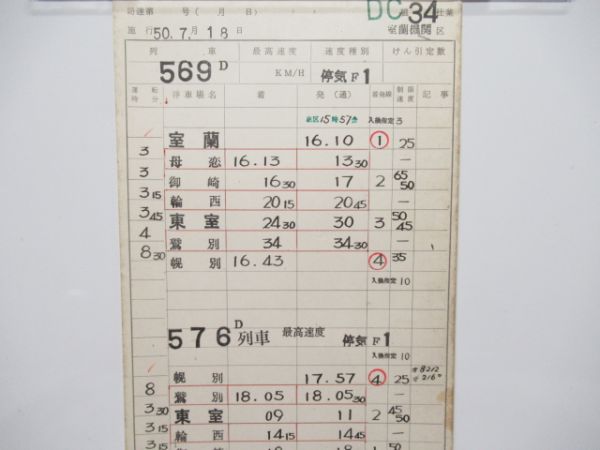 司達第 号( 月 日) DC 34 仕業
施行 50.7.月18日 室蘭機関区
列 車 最高速度 速度種別 けん引定数
569D KM/H 停気F1
運転時分 停車場名 着 発(通) 着発線 制限速度 記事
出区15時57分 入換指定3
室蘭 16.10 ① 25
3 母恋 16.13 13 30 —
3 御崎 16 30 17 2 65 50
3 15 輪西 20 15 20 45 —
3 45 東室 24 30 30 3 50 45
4 鷲別 34 34 30 —
8 30 幌別 16.43 ④ 35
入換指定10
576D列車 最高速度 停気F1
入換指定10
幌別 17.57 ④ 25
8 鷲別 18.05 18.05 30 —
3 30 東室 09 11 2 45 50
3 15 輪西 14 15 14 45 —